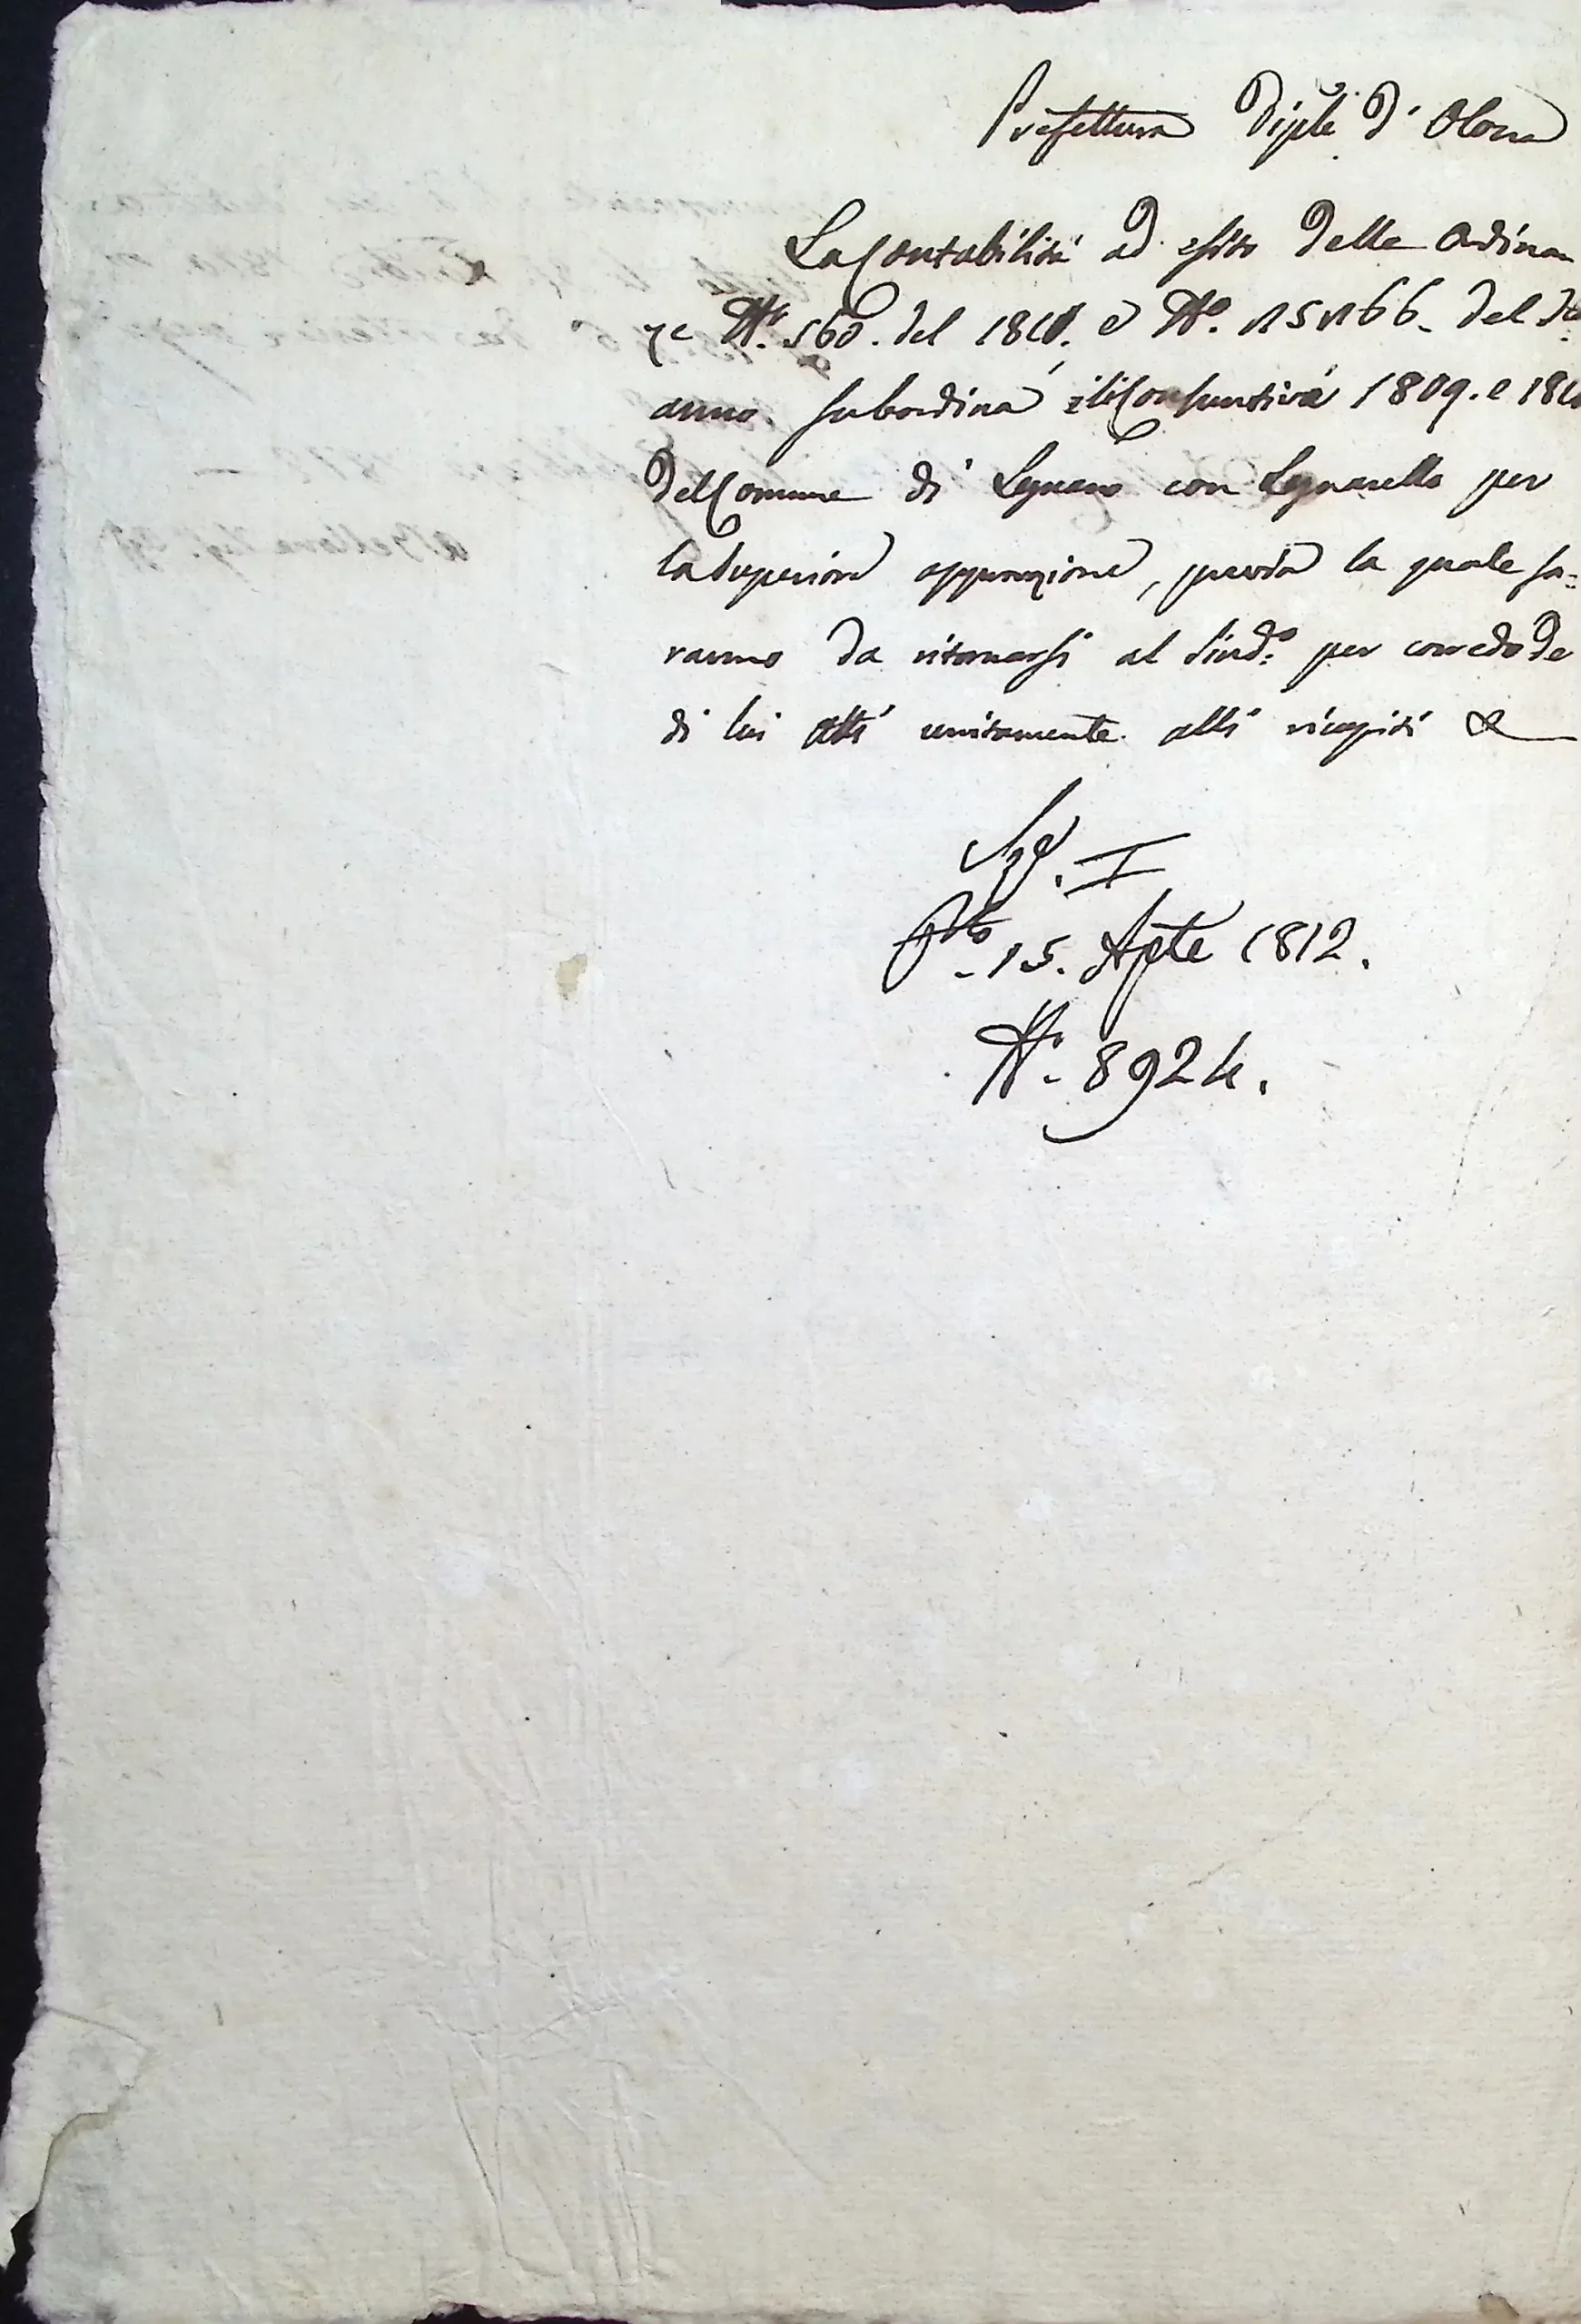 Prefettura Diple d'Olona
La Contabilità ad esito delle Ordinan
ze N.º 560. del e N.º 15166. del
anno subordina li Consuntivi 1809. e
del Comune di Legnano con Legnarello per
la Superiore appurazione, previa la quale sa=
ranno da ritornarsi al Sind.º per corredo de
di lui atti unitamente alli ricapiti &
I
15. 1812.
N. 8924.